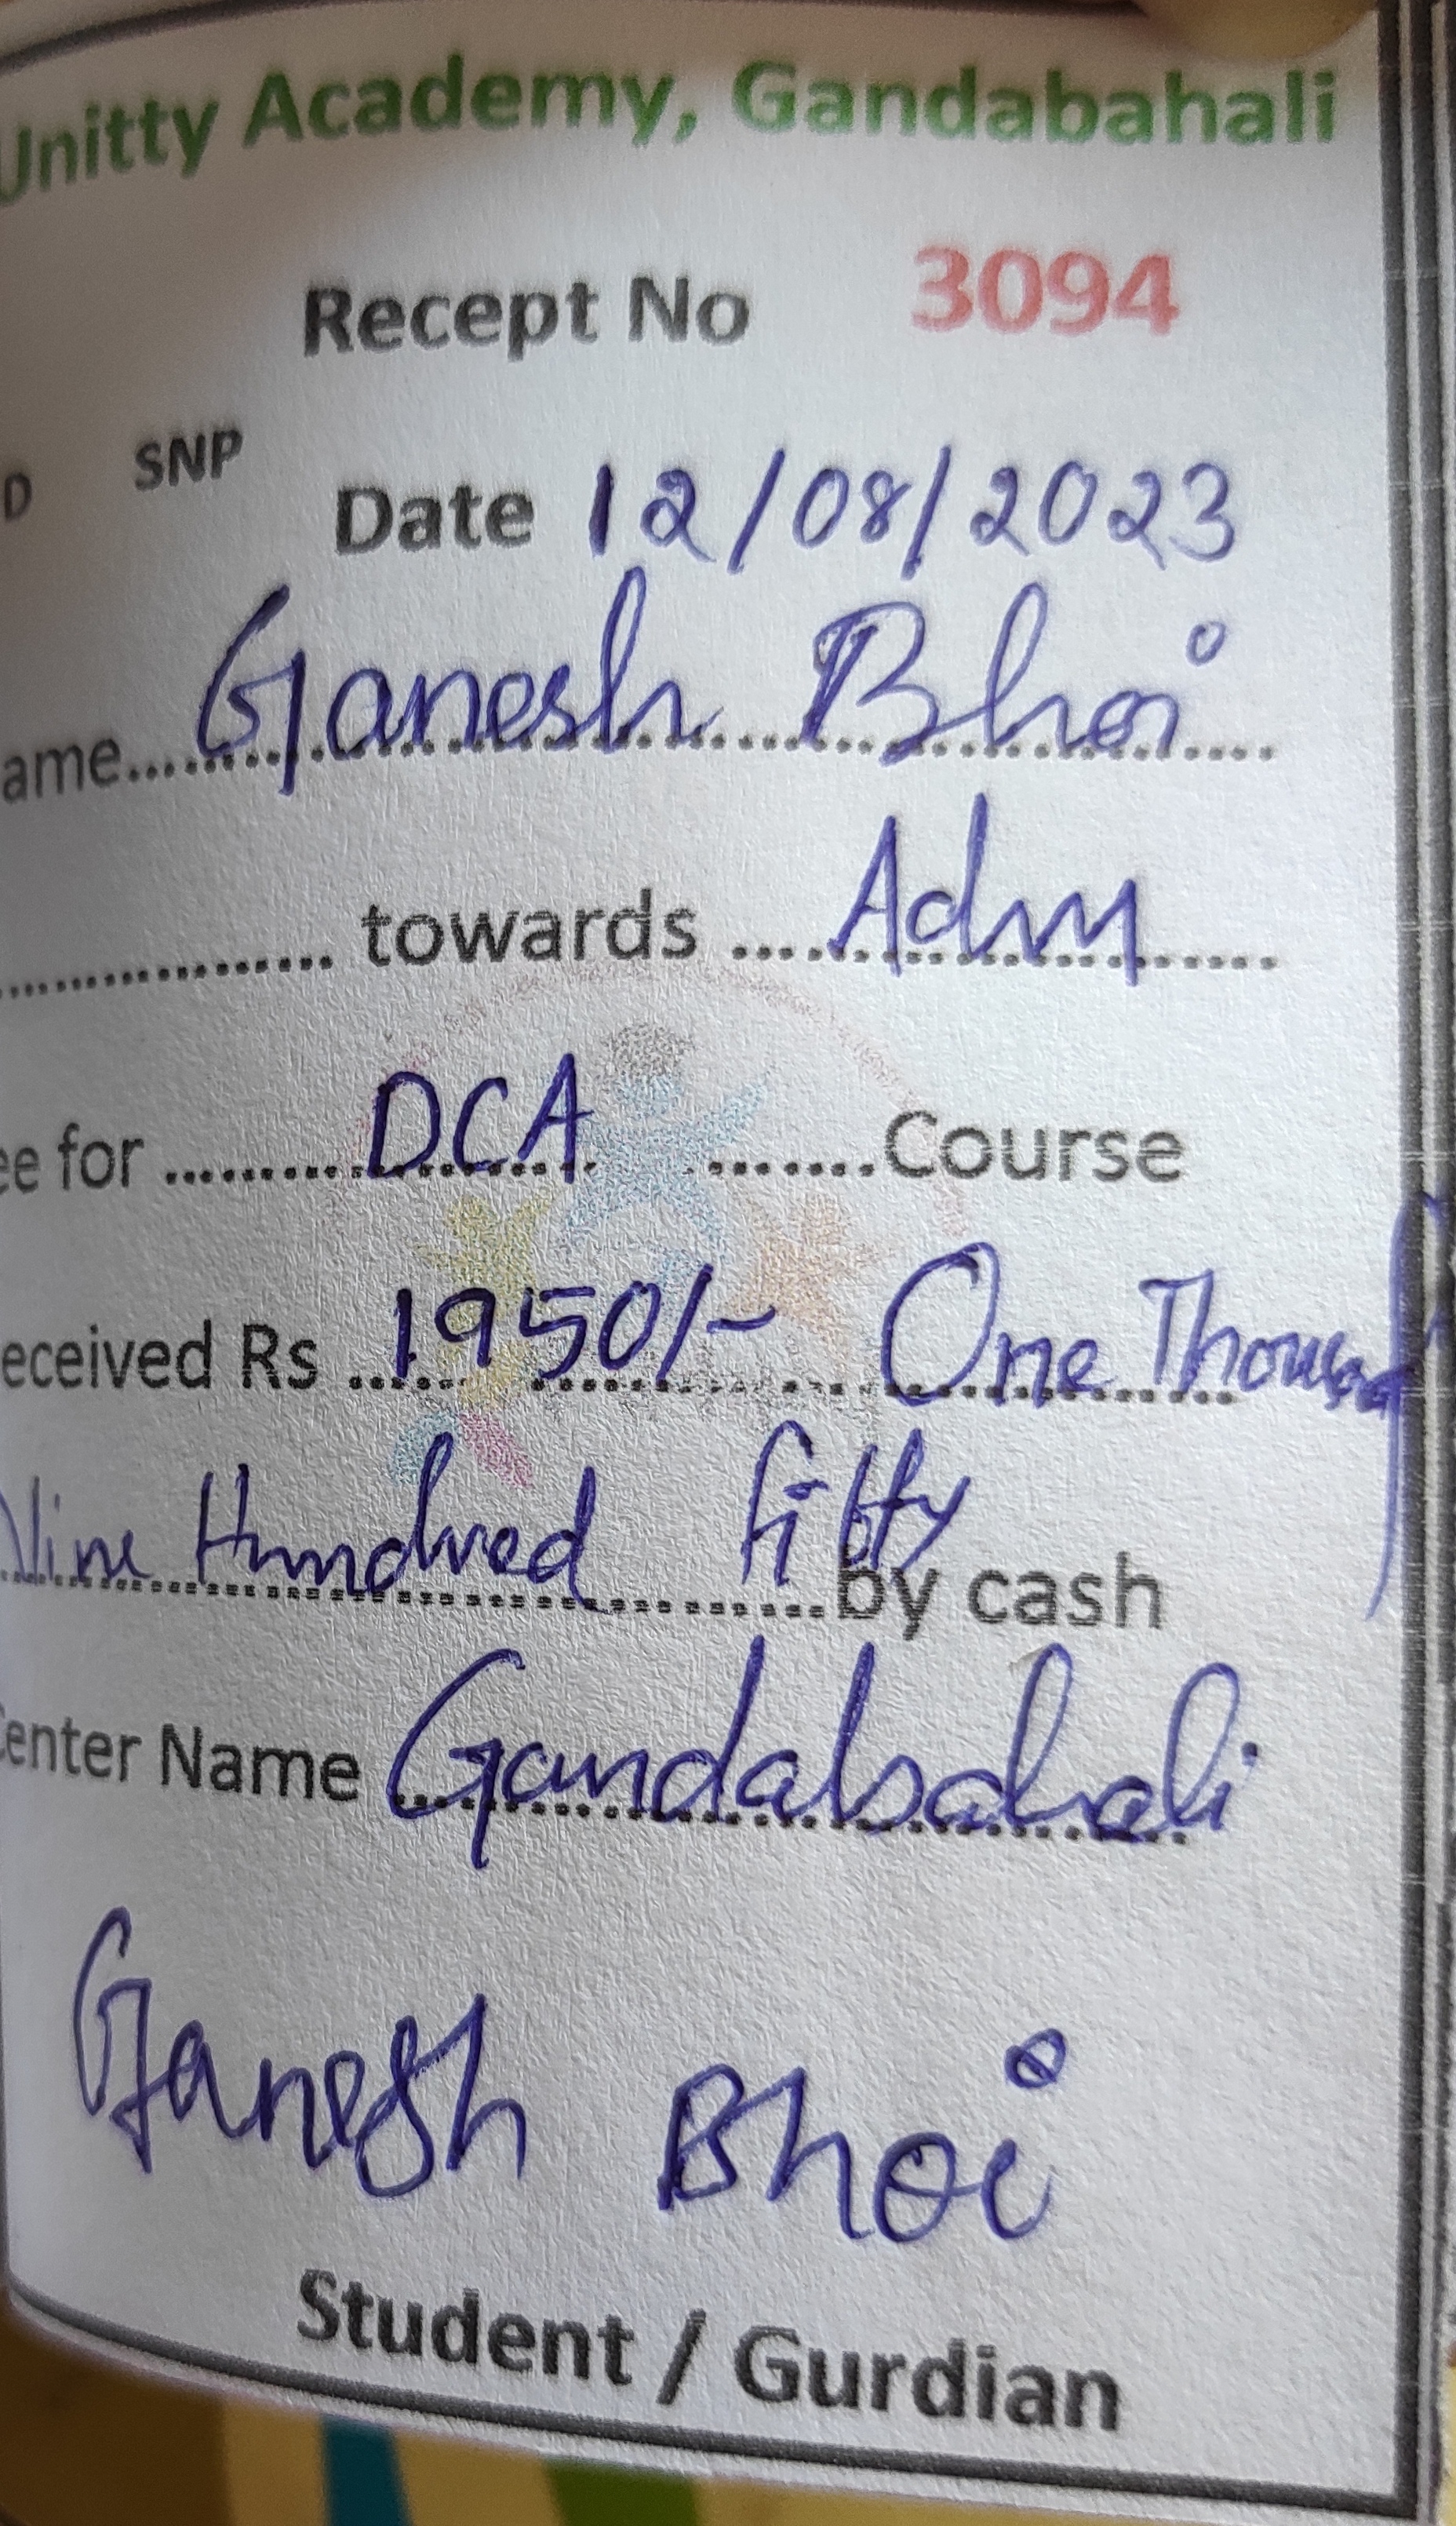 Unitty Academy, Gandabahali
Recept No 3094
D SNP
Date 12/08/2023
ame.....Ganesh Bhoi....
................. towards ....Adm......
ee for ..........DCA.........Course
eceived Rs ....1950/- One Thousand
Nine Hundred fifty by cash
Center Name Gandabahali
Ganesh Bhoi
Student / Gurdian